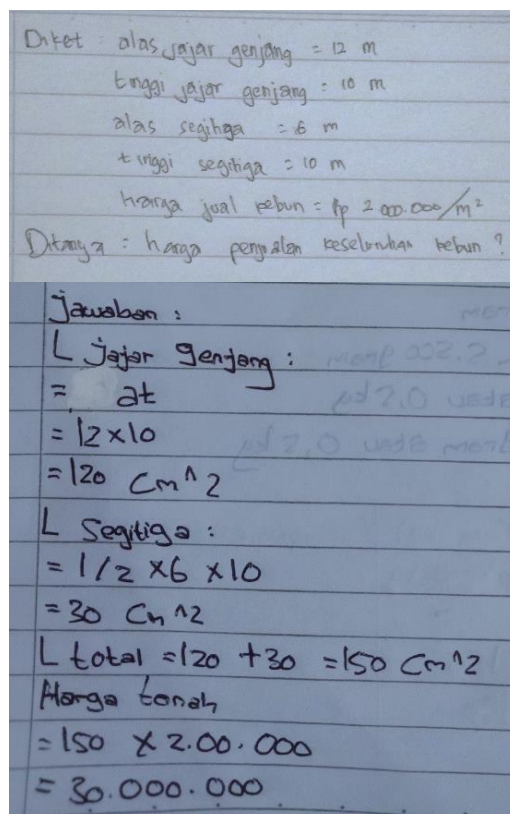 Diket : alas jajar genjang = 12 m
tinggi jajar genjang = 10 m
alas segitiga = 6 m
tinggi segitiga = 10 m
harga jual kebun = Rp 2.000.000/m²
Ditanya : harga penjualan keseluruhan kebun ?
Jawaban :
L jajar genjang :
= at
= 12 x 10
= 120 cm^2
L Segitiga :
= 1/2 x 6 x 10
= 30 cm^2
L total = 120 + 30 = 150 cm^2
Harga tanah
= 150 x 2.00.000
= 30.000.000